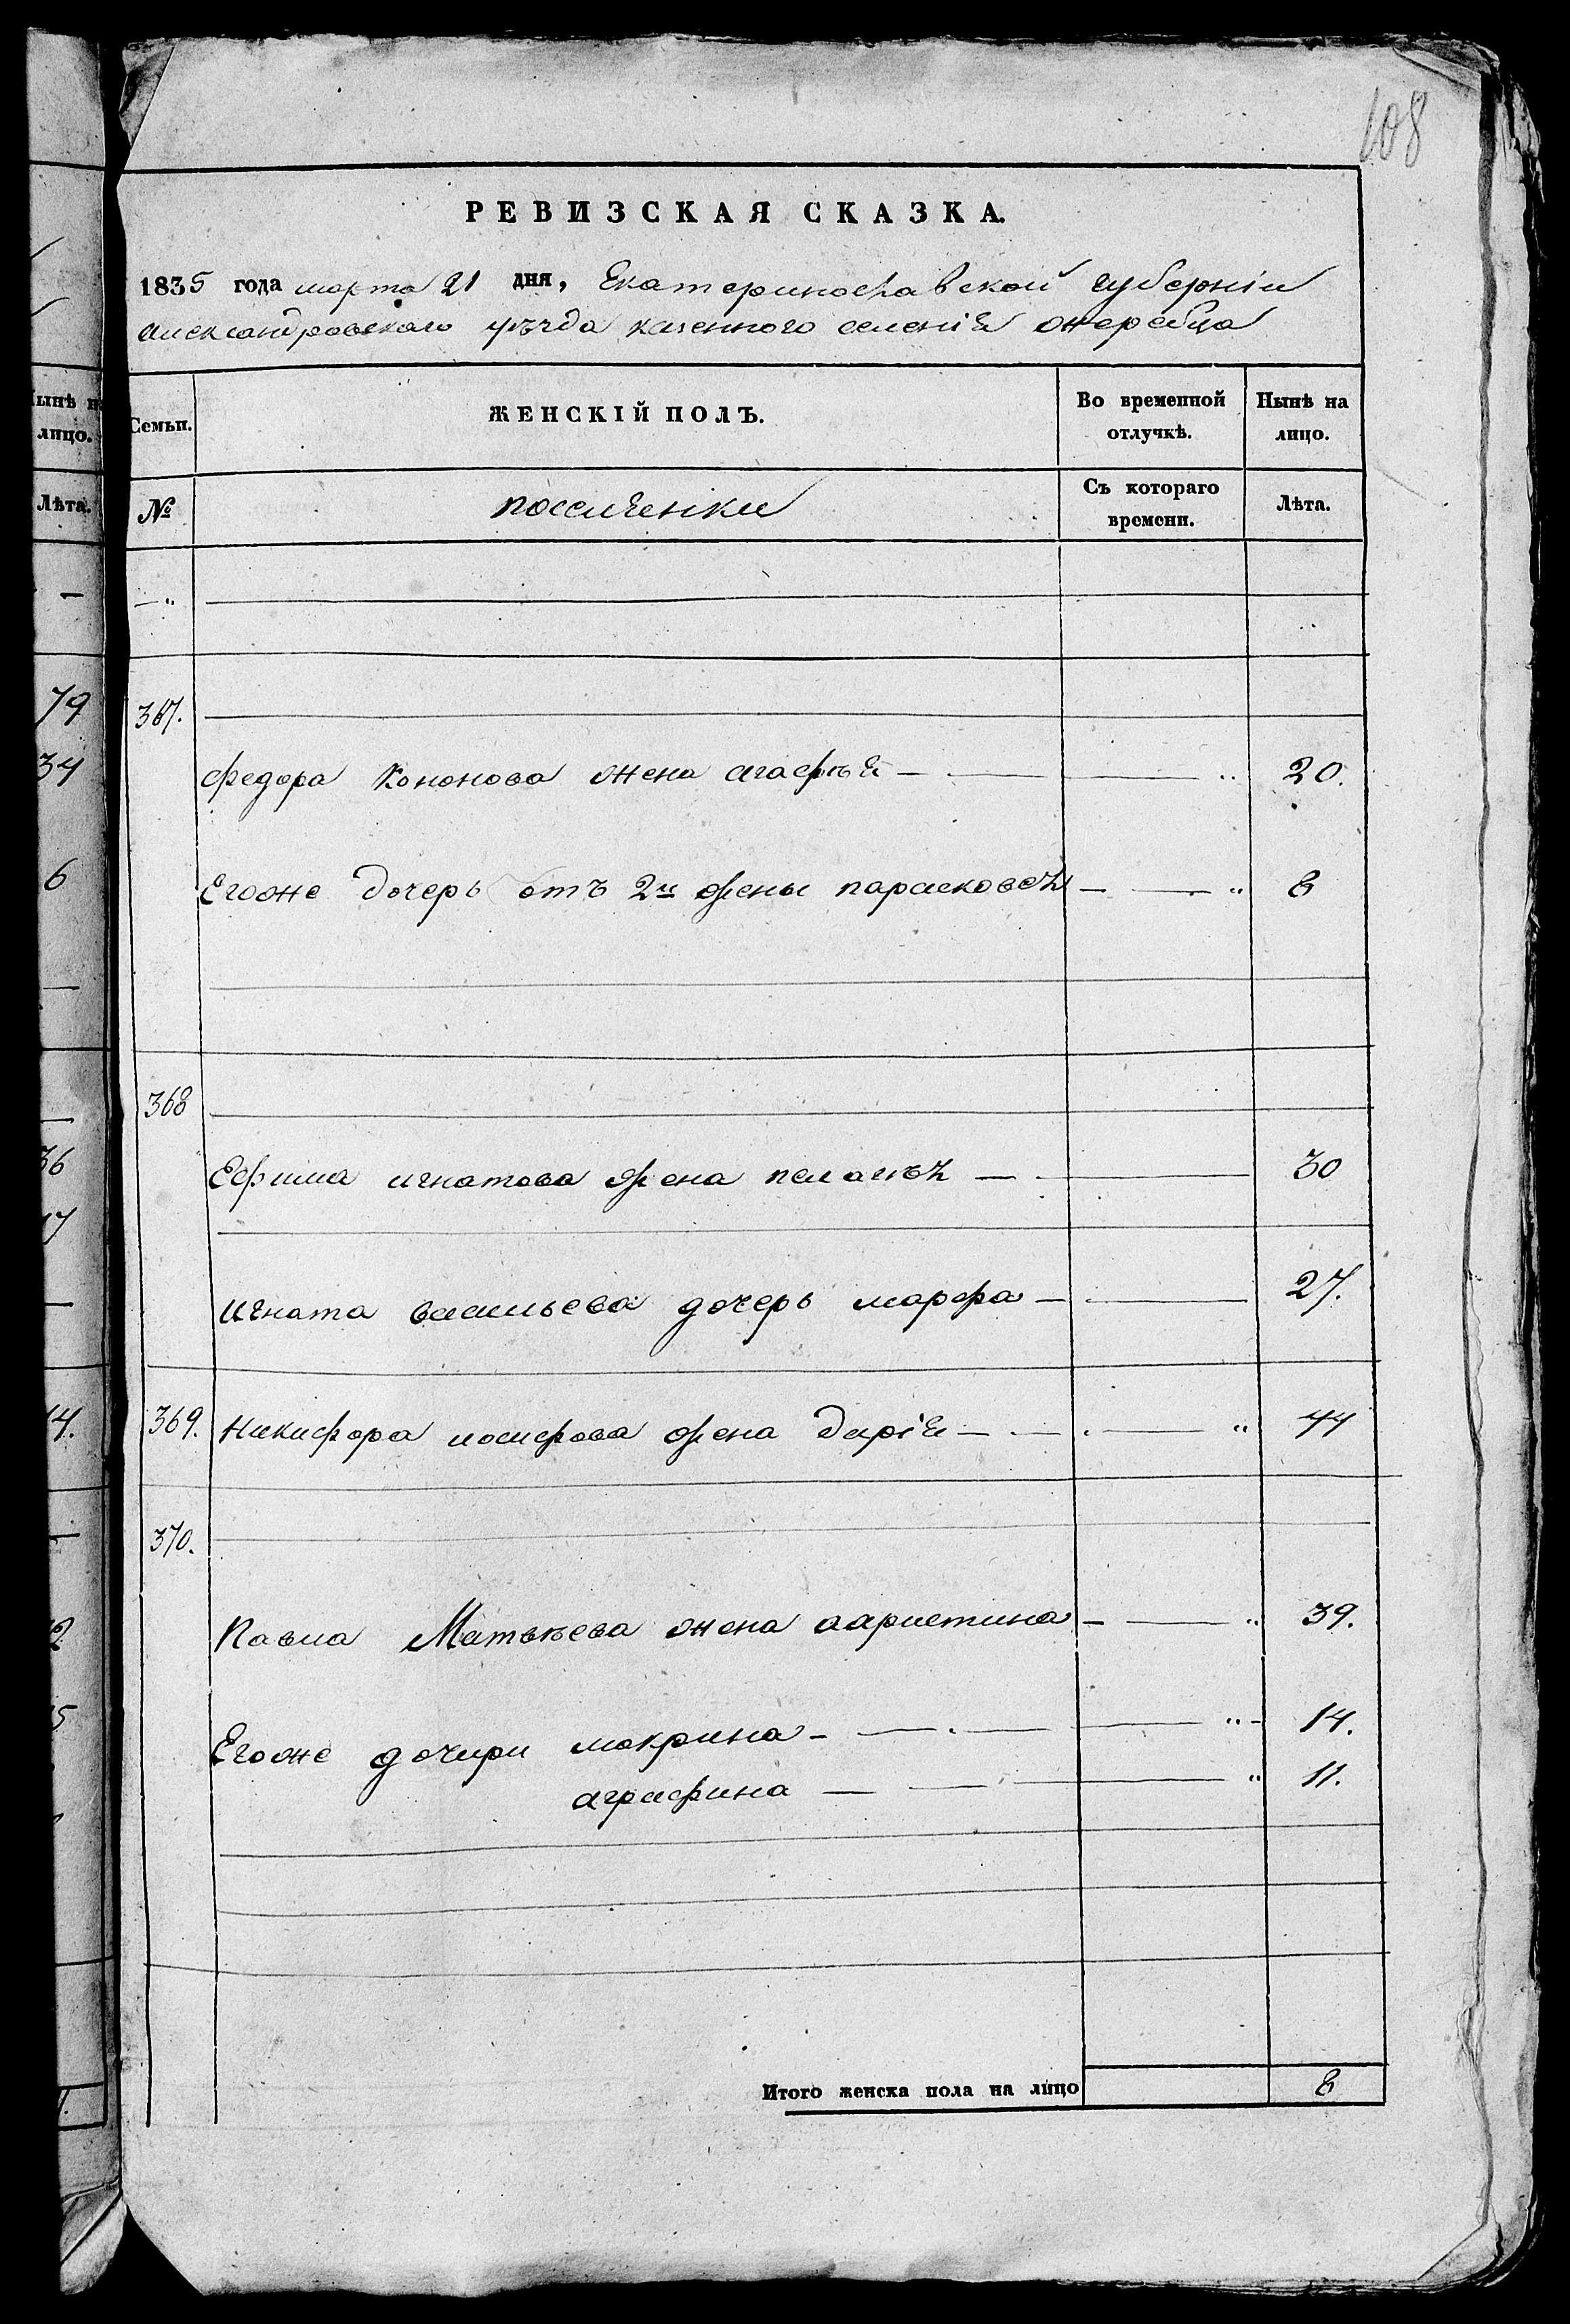 108
РЕВИЗСКАЯ СКАЗКА.
1835 года марта 21 дня, Екатеринославской губерніи
александровскаго уѣзда казенного селенія жеребца
Нынѣ н
лицо.
Семьи.
ЖЕНСКІЙ ПОЛЪ.
Во временной отлучкѣ.
Нынѣ на лицо.
Лѣта.
№
Съ котораго времени.
Лѣта.
79
367.
34
федора Кононова жена агафья 20.
6
Егоже дочерь отъ 2й жены парасковея 8
368
36
Ефима игнатова жена пелагѣя 30
17
игната васильева дочерь марфа 27.
14.
369. Никифора иосифова жена дарія 44
370.
Павла Матвѣева жена 39.
Егоже дочири макрина 14.
аграфина 11.
Итого женска пола на лицо 8